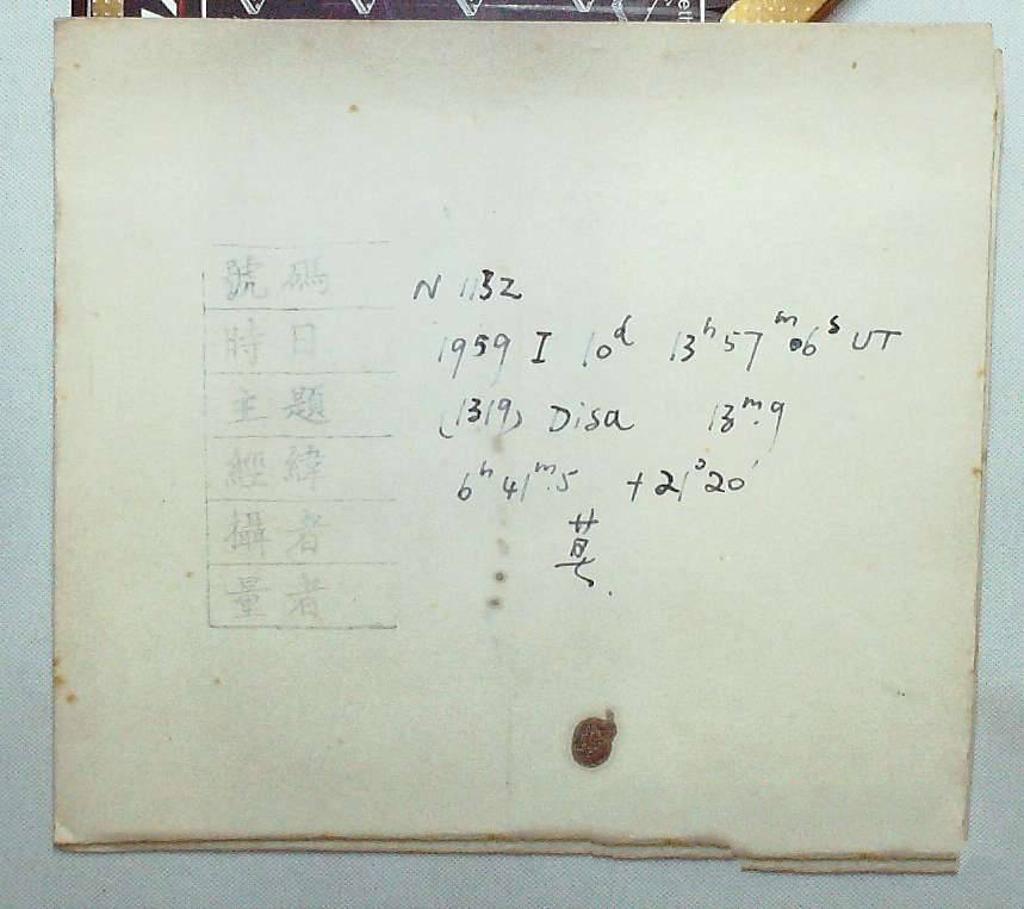 號碼 N 1132
時日 1959 I 10ᵈ 13ʰ57ᵐ06ˢ UT
主題 (1319) Disa 13ᵐ.9
經緯 6ʰ41ᵐ.5 +21°20′
攝者
量者